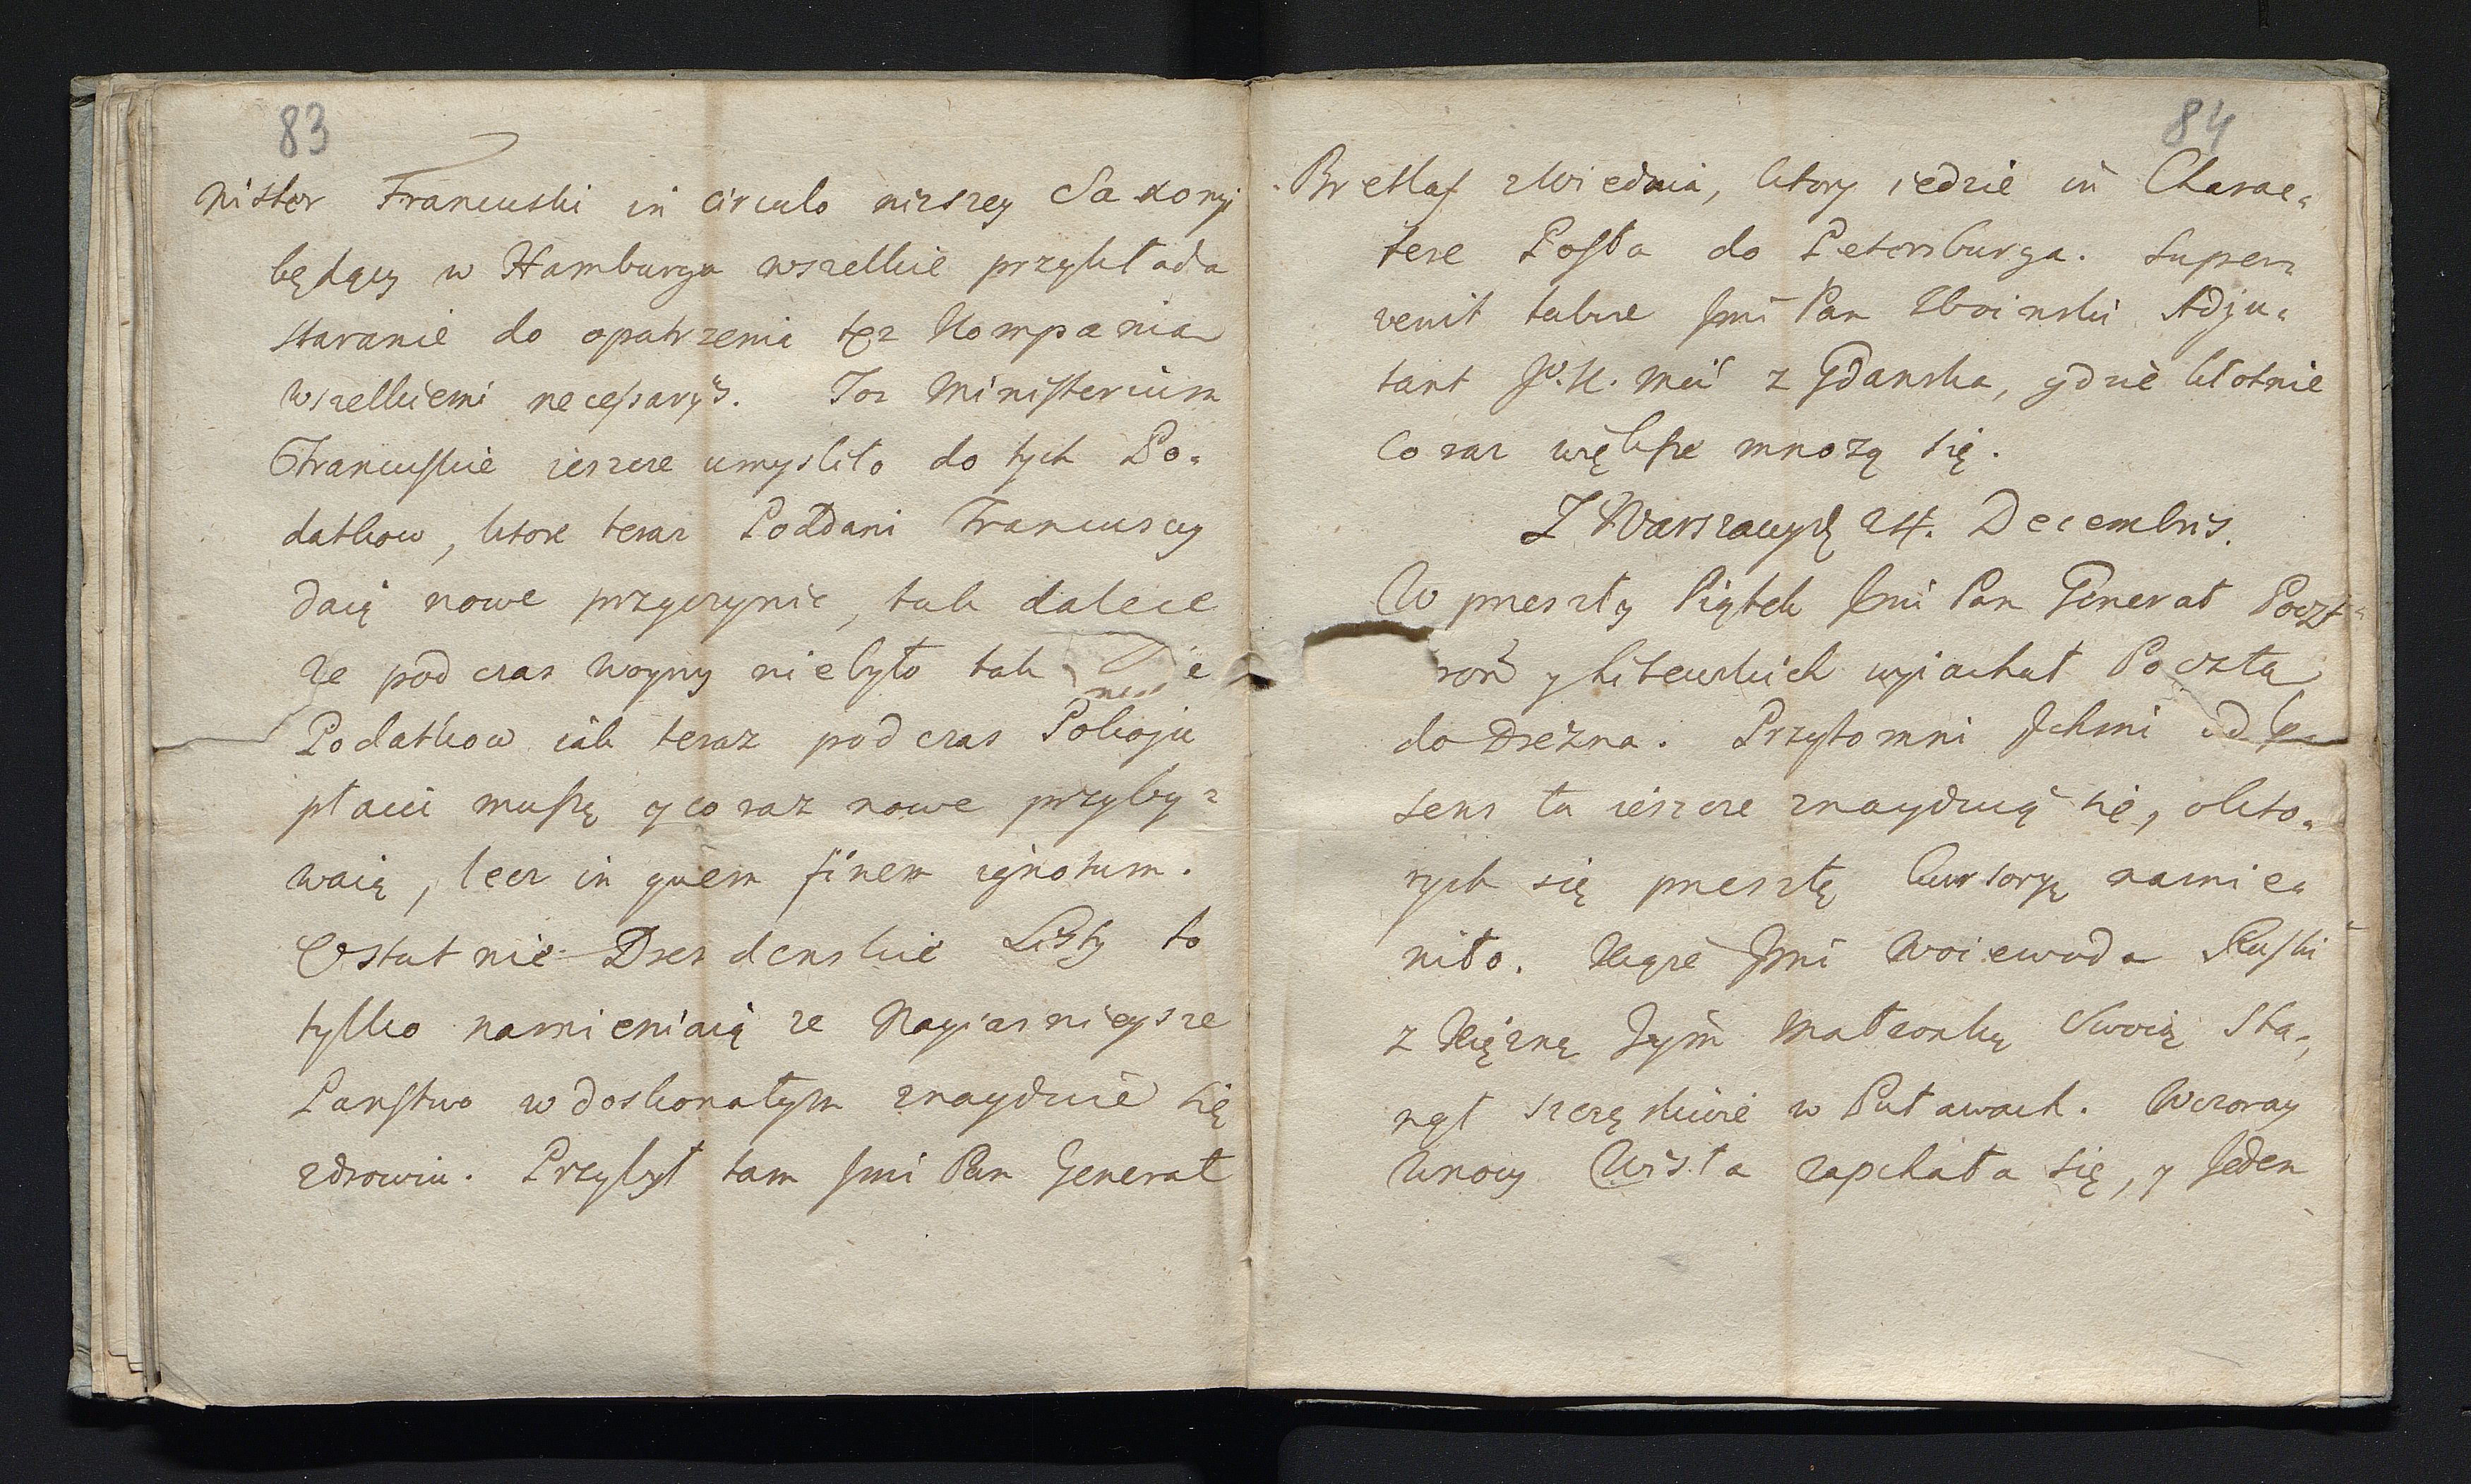 83
nister Francuski in circulo nizszey Saxonyi
będący w Hamburgu wszelkie przykłada
staranie do opatrzenia tęz Kompanią
wszelkiemi necessaryis. Toz Ministerium
Francuskie ieszcze umysliło do tych Po=
datkow, ktore teraz Poddani Francuscy
daią nowe przyczynic, tak dalece
ze pod czas woyny niebyło tak
Podatkow iak teraz pod czas Pokoju
płacić muszą y co raz nowe przyby=
waią, lecz in quem finem ignotum.
Ostatnie Drezdenskie Listy to
tylko namieniaią ze Nayiasnieysze
Panstwo w doskonałym znayduie się
zdrowiu. Przybył tam Jmć Pan Generał
84
Bretlaf z Wiednia, ktory iedzie in Charac=
tere Posła do Petersburga. Super=
venit takze Jmć Pan Zboinski Adju=
tant Jo. K. Mci z Gdanska, gdzie kłotnie
co raz większe mnozą się.
Z Warszawy d 24. Decembris.
W przeszły Piątek Jmć Pan Generał Poczt=
ron y Litewskich wyiachał Pocztą
do Drezna. Przytomni Ichmć
sens tu ieszcze znayduią się, o kto=
rych się przeszłą kursoryą namie=
niło. Xiąze Jmć Woiewoda Ruski
z Xięzną Jeym Małzonką Swoią Sta=
nął szczęsliwie w Puławach. Wczoray
w nocy Wisła zapchała się, y Jeden